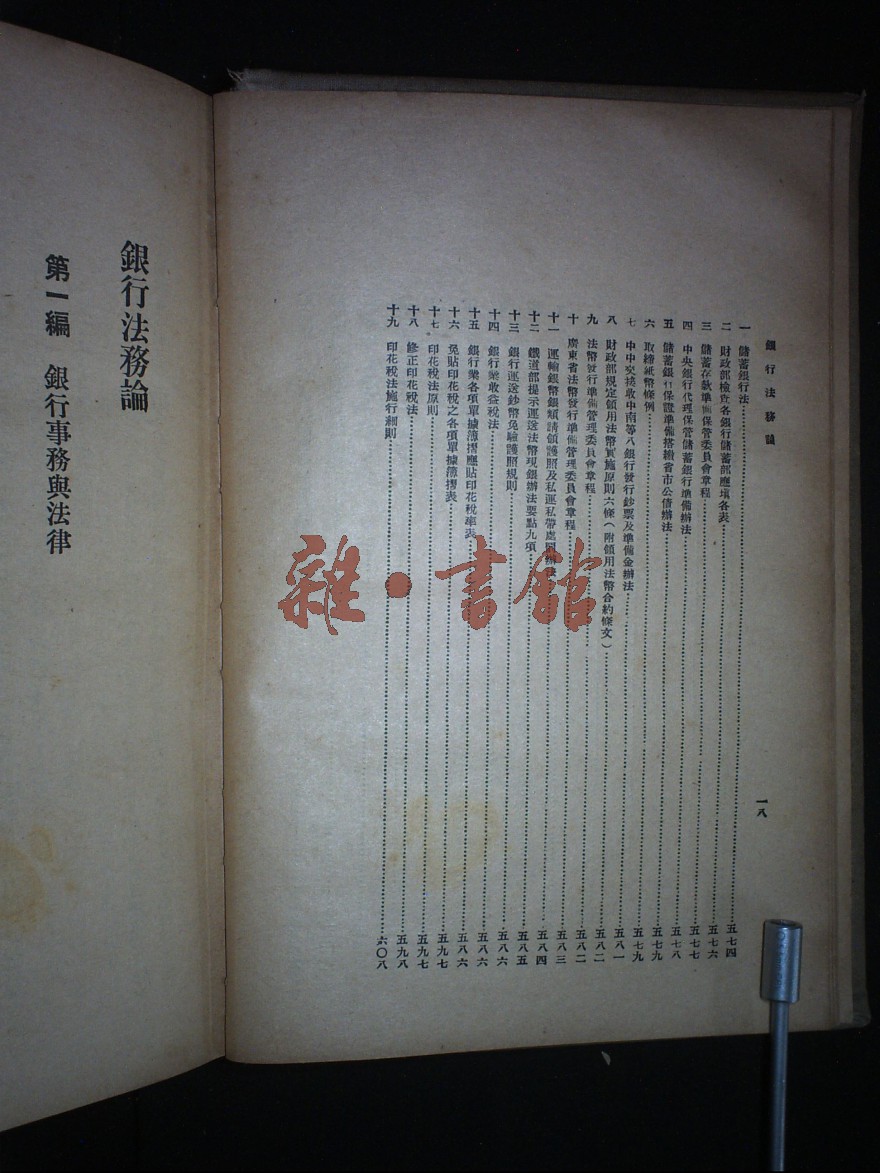 銀行法務論
一八
一 儲蓄銀行法 五七四
二 財政部檢查各銀行儲蓄部應填各表 五七六
三 儲蓄存款準備保管委員會章程 五七七
四 中央銀行代理保管儲蓄銀行準備辦法 五七八
五 儲蓄銀行保證準備搭繳省市公債辦法 五七九
六 取締紙幣條例 五七九
七 中中交接收中南等八銀行發行鈔票及準備金辦法 五八一
八 財政部規定領用法幣實施原則六條(附領用法幣合約條文) 五八二
九 法幣發行準備管理委員會章程 五八二
十 廣東省法幣發行準備管理委員會章程 五八三
十一 運輸銀幣銀類請領護照及私運私帶處罰辦法 五八四
十二 鐵道部提示運送法幣現銀辦法要點九項 五八五
十三 銀行運送鈔幣免驗護照規則 五八六
十四 銀行業收益稅法 五八六
十五 銀行業各項單據簿摺應貼印花稅率表 五八六
十六 免貼印花稅之各項單據簿摺表 五九七
十七 印花稅法原則 五九七
十八 修正印花稅法 五九八
十九 印花稅法施行細則 六〇八
銀行法務論
第一編 銀行事務與法律
雜·書館